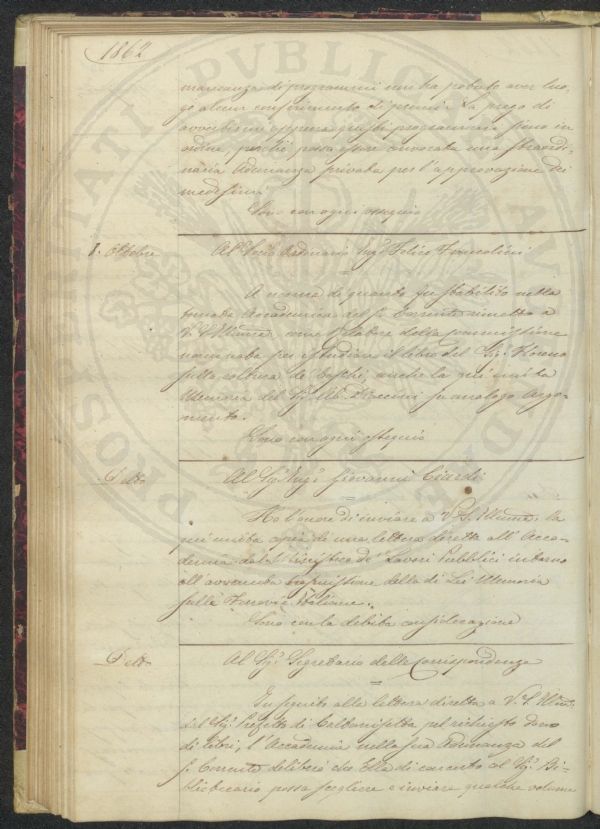 1862
mancanza di programmi non ha potuto aver luo-
go alcun conferimento di premi. La prego di
avvertirmi appena questi programmi sieno in
ordine, perchè possa essere convocata una straordi-
naria Adunanza privata per l'approvazione dei
medesimi.
Sono con ogni ossequio
1. Ottobre
Al Socio Ordinario Sigr Felice Francolini
A norma di quanto fu stabilito nella
tornata Accademica del corrente rimetto a
V. S. Illma, come Relatore della commissione
nominata per istudiare il libro del Sigr
sulla coltura de' boschi, anche la qui unita
Memoria del Sigr su analogo Argo-
mento.
Sono con ogni ossequio
Detto
Al Sigr Ingr Giovanni Ciardi
Ho l'onore di inviare a V. S. Illma la
qui unita copia di una lettera diretta all'Acca-
demia dal Ministro de' Lavori Pubblici intorno
all'avvenuta trasmissione della di Lei Memoria
sulle Ferrovie Italiane.
Sono con la debita considerazione
Detto
Al Sigr Segretario delle Corrispondenze
In seguito alla lettera diretta a V. S. Illma
dal Sigr Prefetto di Caltanisetta pel richiesto dono
di libri, l'Accademia nella sua Adunanza del
Corrente deliberò che Ella di concerto col Sigr Bi-
bliotecario possa scegliere e inviare qualche volume
PROSPERITATI PUBLICAE AUGENDAE